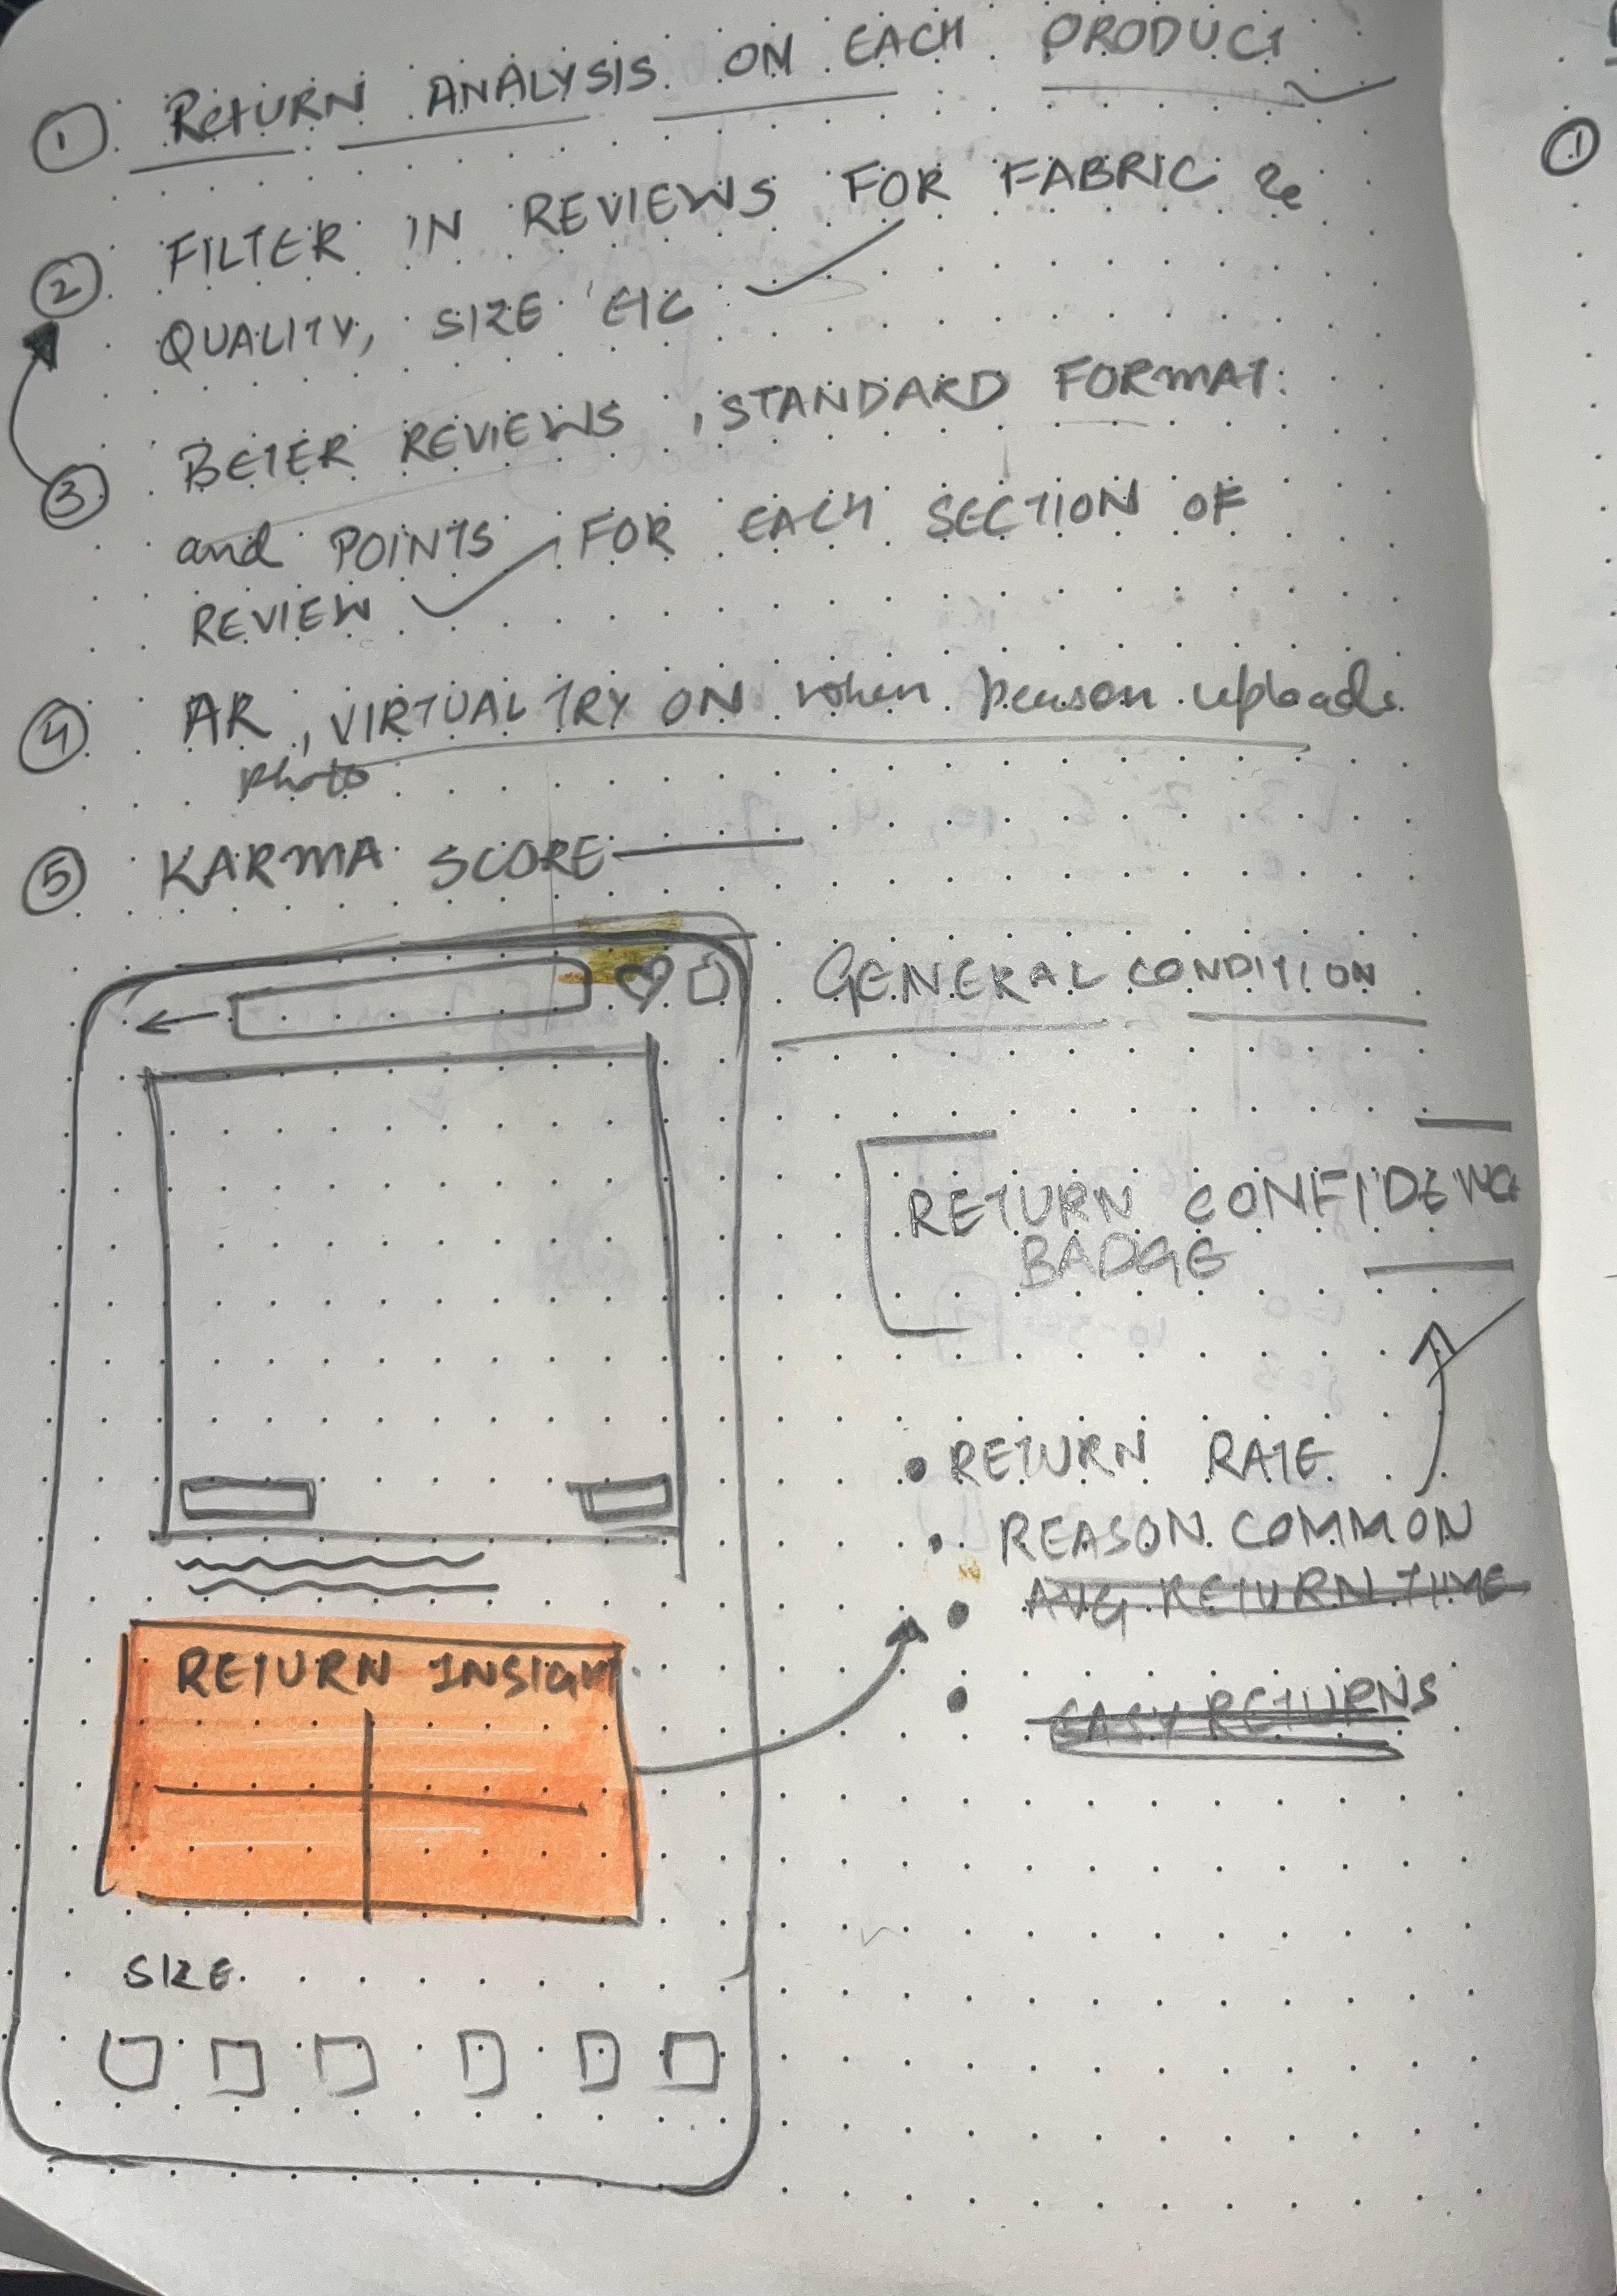 ① RETURN ANALYSIS ON EACH PRODUCT
② FILTER IN REVIEWS FOR FABRIC &
QUALITY, SIZE ETC
③ BETER REVIEWS, STANDARD FORMAT
and POINTS FOR EACH SECTION OF
REVIEW
④ AR, VIRTUAL TRY ON when person uploads
photo
⑤ KARMA SCORE
GENERAL CONDITION
RETURN CONFIDENCE
BADGE
• RETURN RATE
• REASON COMMON
• AVG RETURN TIME
• EASY RETURNS
RETURN INSIGHT
SIZE
①